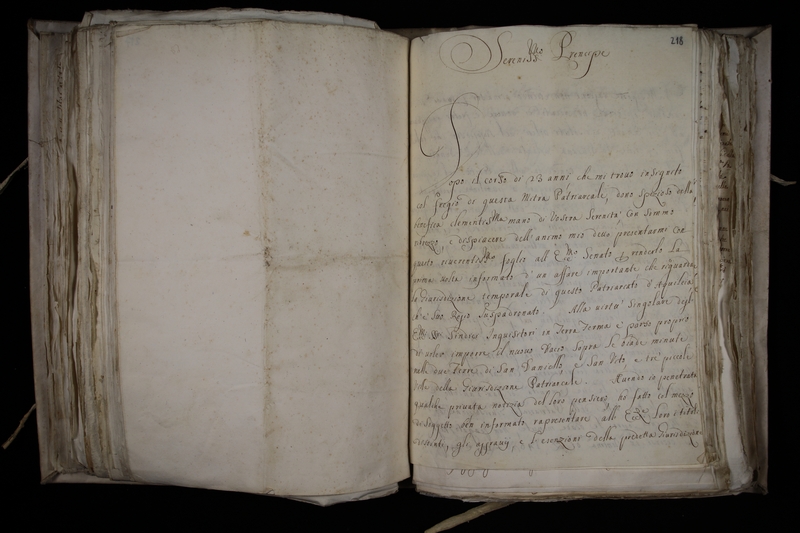 218
Sereniss.mo Prencipe
Dopo il corso di 23 anni che mi trovo insignito
col fregio di questa Mitra Patriarcale, dono spezioso della
benefica clementiss.ma mano di Vostra Serenità con sommo
e dispiacere dell'animo mio devo presentarmi con
questo riverentiss.mo foglio all'Ecc.mo Senato, e renderlo la
prima volta informato d'un affare importante che riguarda
la Giurisdizione temporale di questo Patriarcato d'Aquileia
e suo Regio Juspadronato. Alla virtù singolare degl'
Ecc.mi Sindici Inquisitori in Terra Ferma è parso proprio
di voler imporre il nuovo Dazio sopra le biade minute
nelle due Terre di San Daniello, e San Vito, e tre piccole
Ville della Giurisdizione Patriarcale. Avendo io penetrata
qualche privata notizia del loro pensiero, ho fatto col mezzo
di soggetto ben informato rappresentare all'Ecc.ze loro i titoli
gli aggravj, e l'esenzione della predetta Giurisdizione